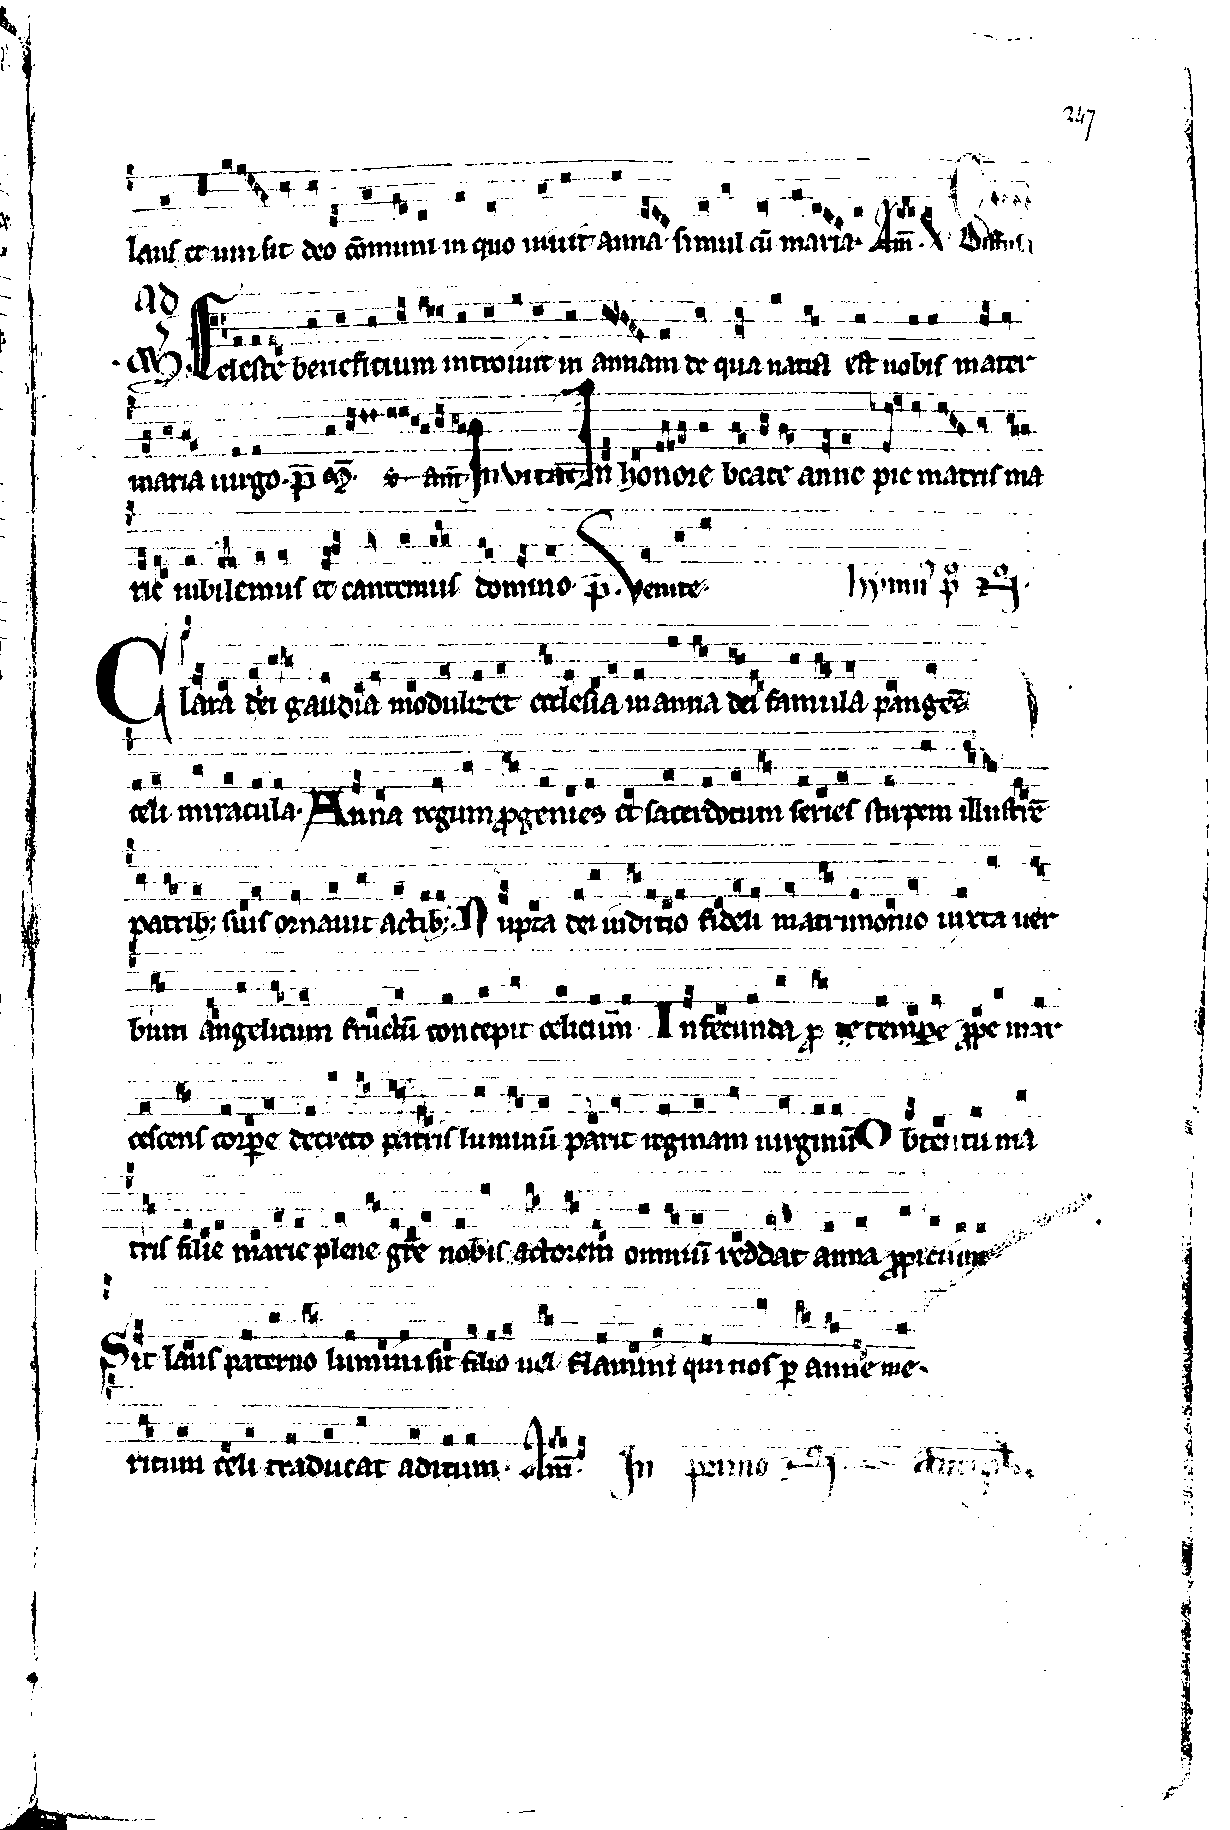 247
laus et uni sit deo cōmuni in quo uiuit anna simul cū maria. Am̄. V Diffusa
ad
Celeste beneficium introiuit in annam de qua nata est nobis mater
maria uirgo. p̄ m̄. am̄ Invitat̄ In honore beate anne pie matris ma
rie iubilemus et cantemus domino. p̄. Venite. hymn
Clara dei gaudia modulizet ecclesia in anna dei famula pangēs
celi miracula. Anna regum ꝓgenies et sacerdotum series stirpem illustrē
patrib; suis ornauit actib; Nupta dei iuditio fideli matrimonio iuxta uer
bum angelicum fructū concepit celicum. Infecunda ꝓ te tempore ꝓpe mar
cescens corpore decreto patris luminū parit reginam uirginū Obtentu ma
tris filie marie plene gr̄e nobis actorem omniū reddat anna ꝓpicium
Sit laus paterno lumini sit filio uel flamini qui nos ꝑ anne me-
ritum celi traducat aditum. Am̄. In primo